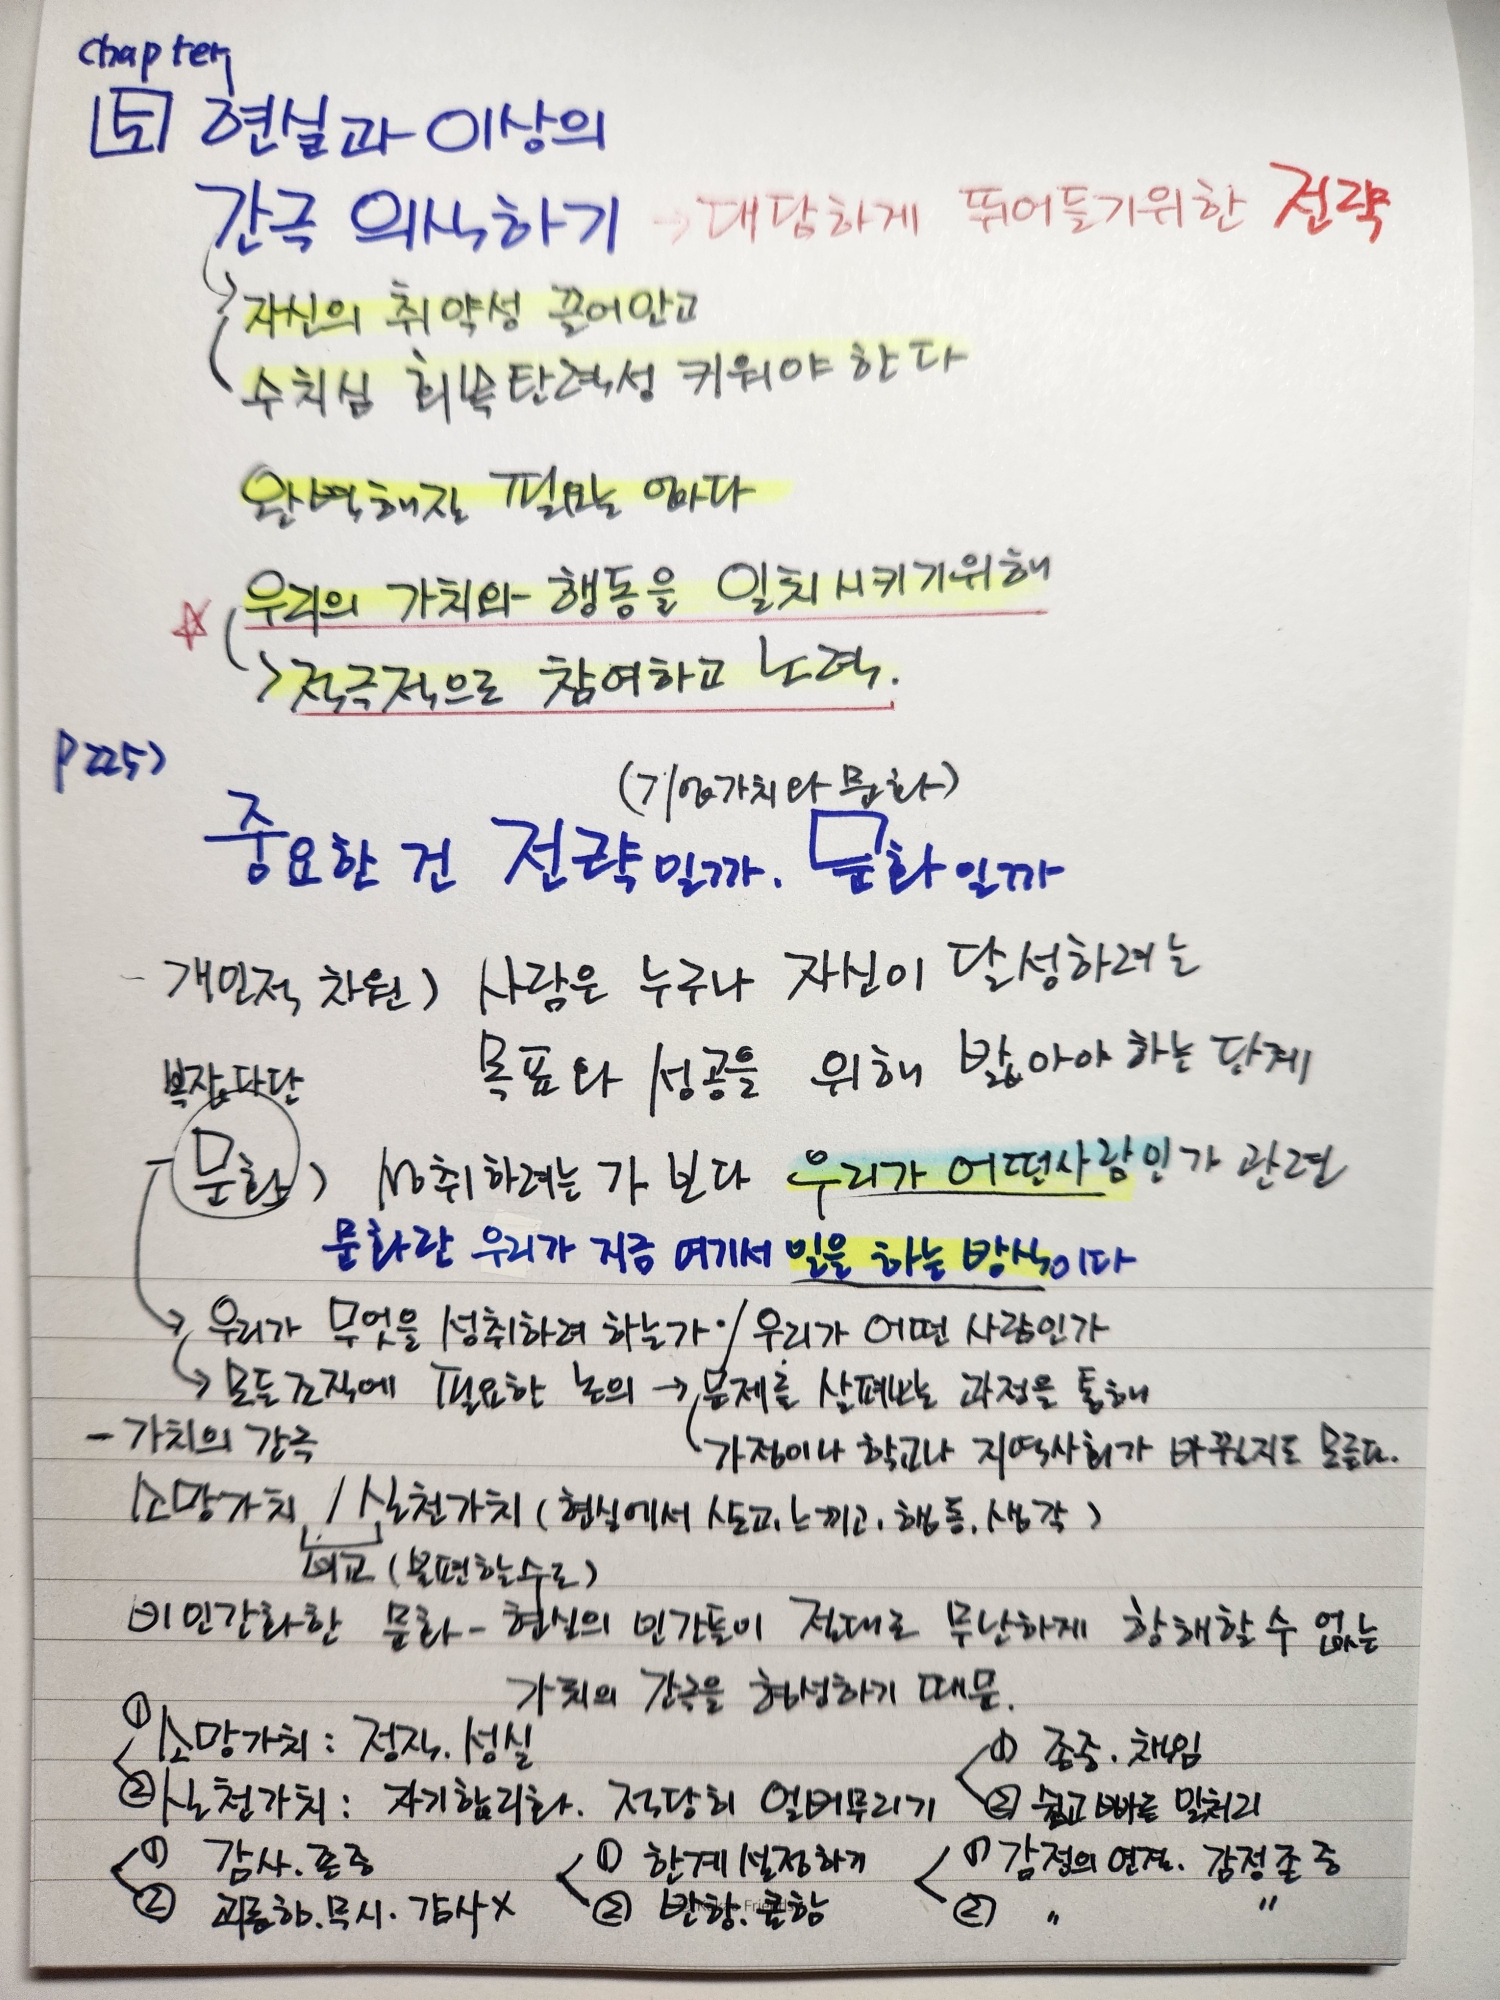 chapter
5 현실과 이상의
간극 의식하기 → 대담하게 뛰어들기위한 전략
자신의 취약성 끌어안고
수치심 회복탄력성 키워야 한다
완벽해질 필요는 없다
☆ 우리의 가치와 행동을 일치시키기위해
> 적극적으로 참여하고 노력.
P225>
(기업가치와 문화)
중요한 건 전략일까. 문화일까
- 개인적 차원) 사람은 누구나 자신이 달성하려는
목표와 성공을 위해 밟아야 하는 단계
복잡다단
- 문화) 성취하려는가 보다 우리가 어떤사람인가 관련
문화란 우리가 지금 여기서 일을 하는 방식이다
→ 우리가 무엇을 성취하려 하는가 / 우리가 어떤 사람인가
→ 모든조직에 필요한 논의 → 문제를 살펴보는 과정을 통해
- 가치의 간극
가정이나 학교나 지역사회가 바뀔지도 모른다.
소망가치 / 실천가치 (현실에서 사고, 느끼고, 행동, 생각)
비교 (불편할수로)
비인간화한 문화 - 현실의 인간들이 절대로 무난하게 항해할 수 없는
가치의 간극을 형성하기 때문.
① 소망가치 : 정직. 성실
① 존중. 책임
② 실천가치 : 자기합리화. 적당히 얼버무리기
② 쉽고 빠른 일처리
① 감사. 존중
① 한계설정하기
① 감정의 연결. 감정존중
② 괴롭힘. 무시. 감사 X
② 반항. 쿨함
② 〃 〃